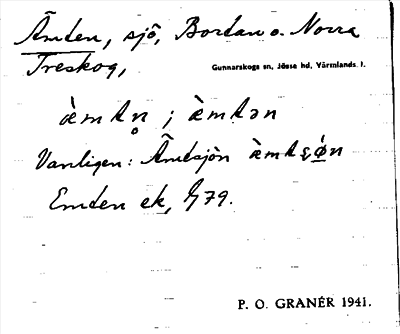 Ämten, sjö, Bortan o. Norra
Treskog,
Gunnarskogs sn, Jösse hd, Värmlands l.
ä̀mtn̥ ; ä̀mtən
Vanligen: Ämtsjön ä̀mtʂø̀n
Emten ek, G79.
P. O. GRANÉR 1941.